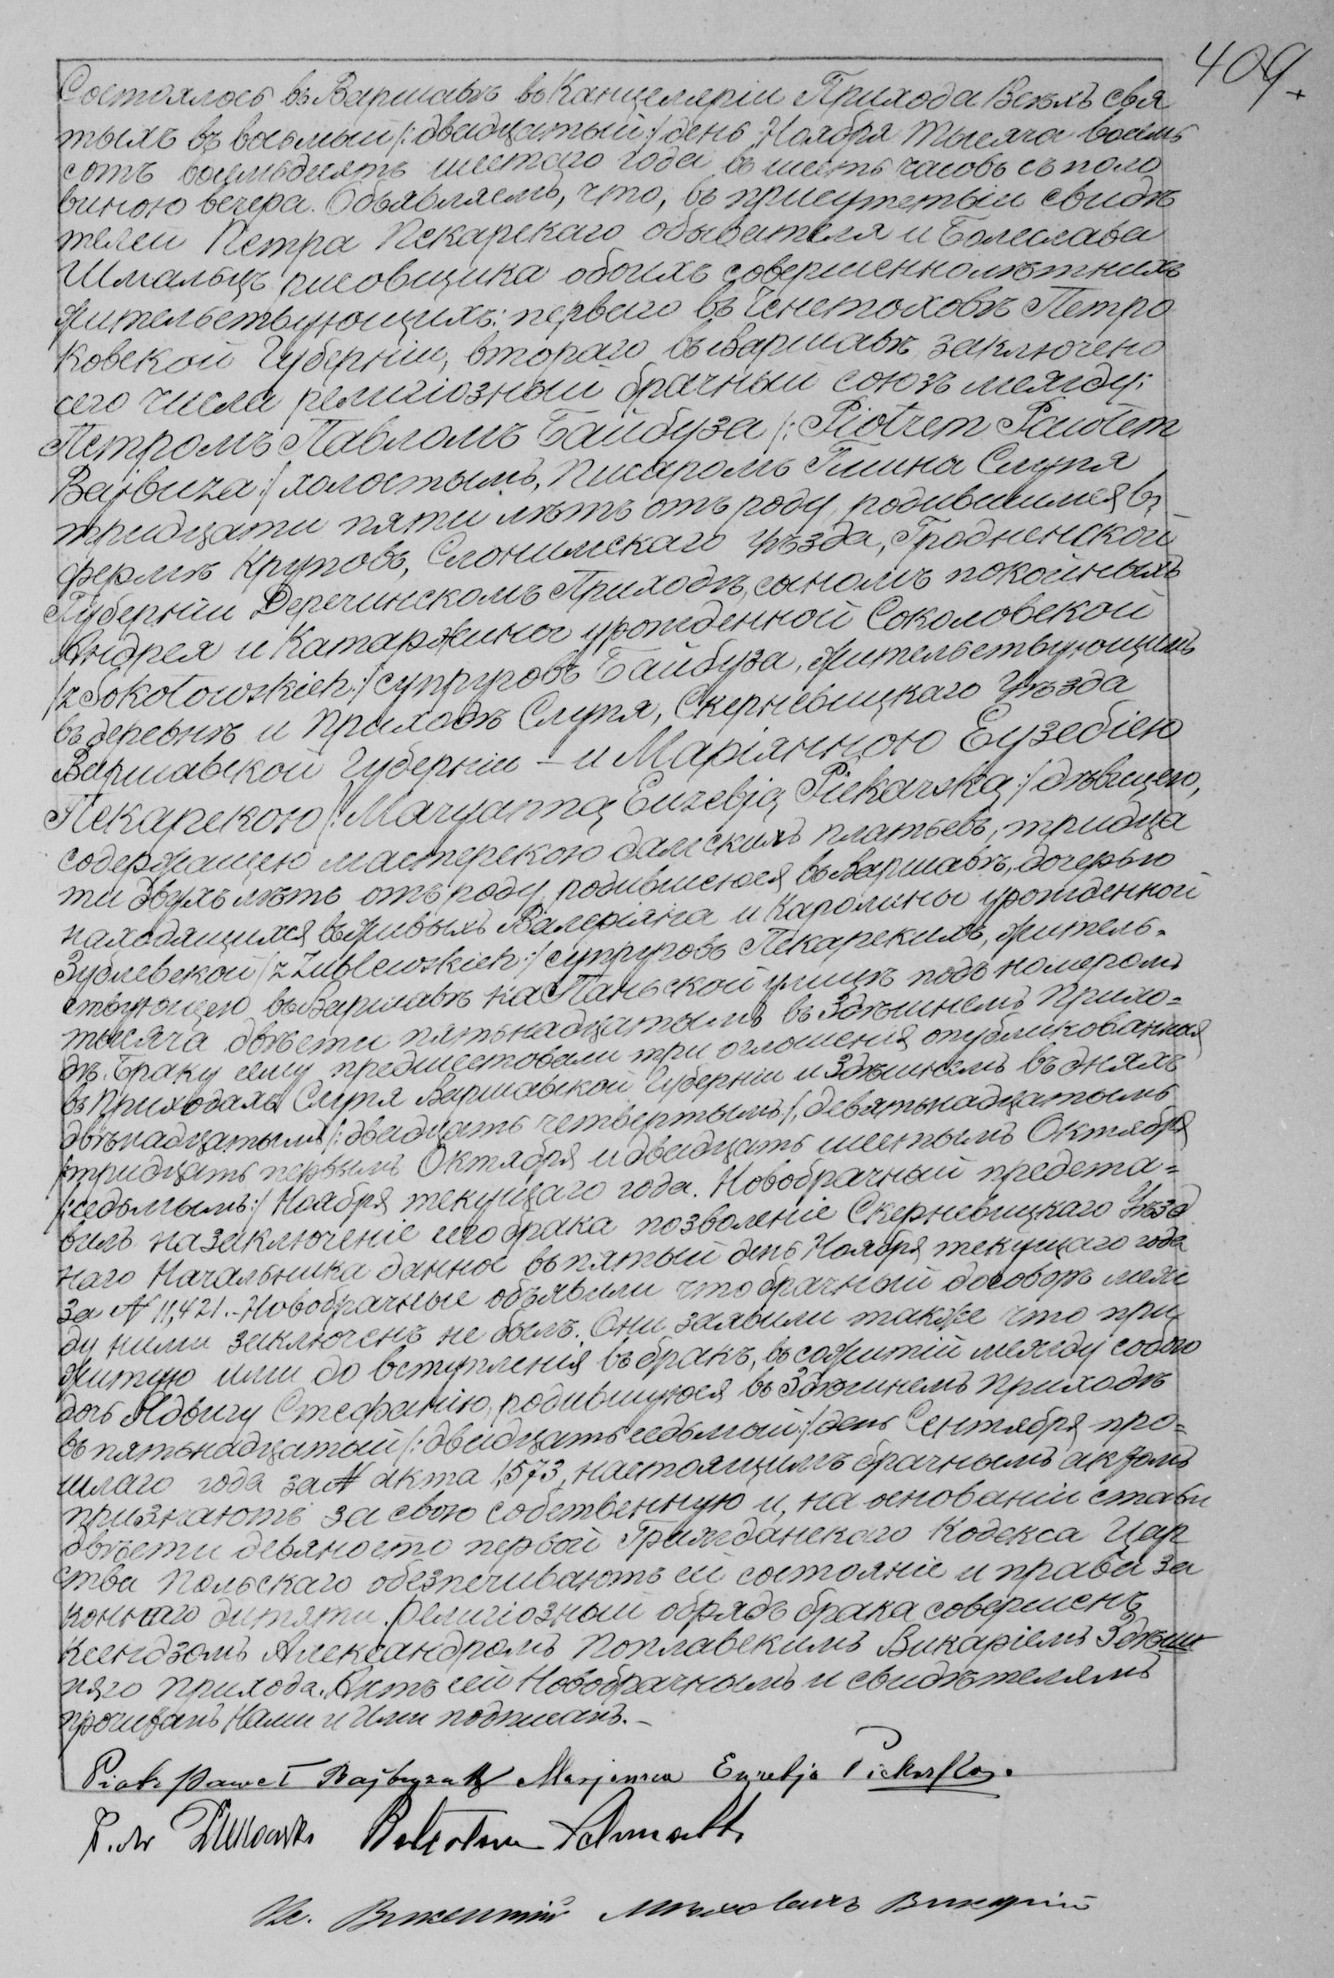 409
Состоялось въ Варшавѣ въ Канцеляріи Прихода Всѣхъ свя
тыхъ въ восьмый /:двадцатый:/ день Ноября тысяча восемь
сотъ восемьдсятъ шестаго года въ шесть часовъ съ поло
виною вечера. Объявляемъ, что, въ присутствіи свидѣ
телей Петра Пекарскаго обывателя и Болеслава
Шмальцъ рисовщика обоихъ совершеннолѣтнихъ
жительствующихъ: перваго въ Ченстоховѣ Петро
ковской Губерніи, втораго въ Варшавѣ, заключено
сего числа религіозный брачный союзъ между:
Петромъ Павломъ Байбуза /:Piotrem Pawłem
Bajbuza:/ холостымъ, Писаромъ Гмина Слупя
тридцати пяти лѣтъ отъ роду, родившимся въ
фермѣ Круповъ, Слонимскаго Уѣзда, Гродненской
Губерніи Деречинскомъ Приходѣ, сыномъ покойныхъ
Андрея и Катаржины урожденной Соколовской
/z Sokołowskich:/ супруговъ Байбуза, жительствующимъ
въ деревнѣ и Приходѣ Слупя, Скерневицкаго Уѣзда
Варшавской Губерніи – и Маріянною Еузебіею
Пекарскою /:Maryanną Euzebją Piekarską:/ дѣвицею,
содержащею мастерскою дамскихъ платьевъ, тридца
ти двухъ лѣтъ отъ роду, родившеюся въ Варшавѣ, дочерью
находящихся въ живыхъ Валеріяна и Каролины урожденной
Зублевской /z Zublewskich:/ супруговъ Пекарскихъ, житель-
ствующею въ Варшавѣ на Паньской улицѣ подъ номеромъ
тысяча двѣсти пятьнадцатымъ въ Здѣшнемъ Прихо-
дѣ. Браку сему предшествовали три оглошенія опубликованныя
въ Приходахъ Слупя Варшавской Губерніи и Здѣшнемъ въ дняхъ
двѣнадцатымъ /:двадцать четвертымъ:/, девятьнадцатымъ
/тридцать первымъ Октября и двадцать шестымъ Октября
/:седьмымъ:/ Ноября текущаго года. Новобрачный предста-
вилъ на заключеніе сего брака позволеніе Скерневицкаго Уѣзд
наго Начальника данное въ пятый день Ноября текущаго года
за N 11,421.- Новобрачные объявили что брачный договоръ меж
ду ними заключенъ не былъ. Они заявили также что при
житую ими до вступленія въ бракъ, въ сожитій между собою
дочь Ядвигу Стефанію, родившуюся въ Здѣшнемъ Приходѣ
въ пятьнадцатый /:двадцать седьмый:/ день Сентября про-
шлаго года за N акта 1,573, настоящимъ брачнымъ актомъ
признаютъ за свою собственную и, на основаніи статьи
двѣсти девяносто первой Гражданского Кодекса Цар
ства Польскаго обезпечиваютъ ей состояніе и права за
коннаго дитяти. Религіозный обрядъ брака совершенъ
Ксендзомъ Александромъ Поплавскимъ Викаріемъ Здѣш
няго Прихода. Актъ сей Новобрачнымъ и свидѣтелямъ
прочитанъ Нами и Ими подписанъ.–
Piotr Paweł Bajbuza Marjanna Euzebja Piekarska.
Piotr Piekarski Bolesław Schmalz
Кс. Викентій Викарій